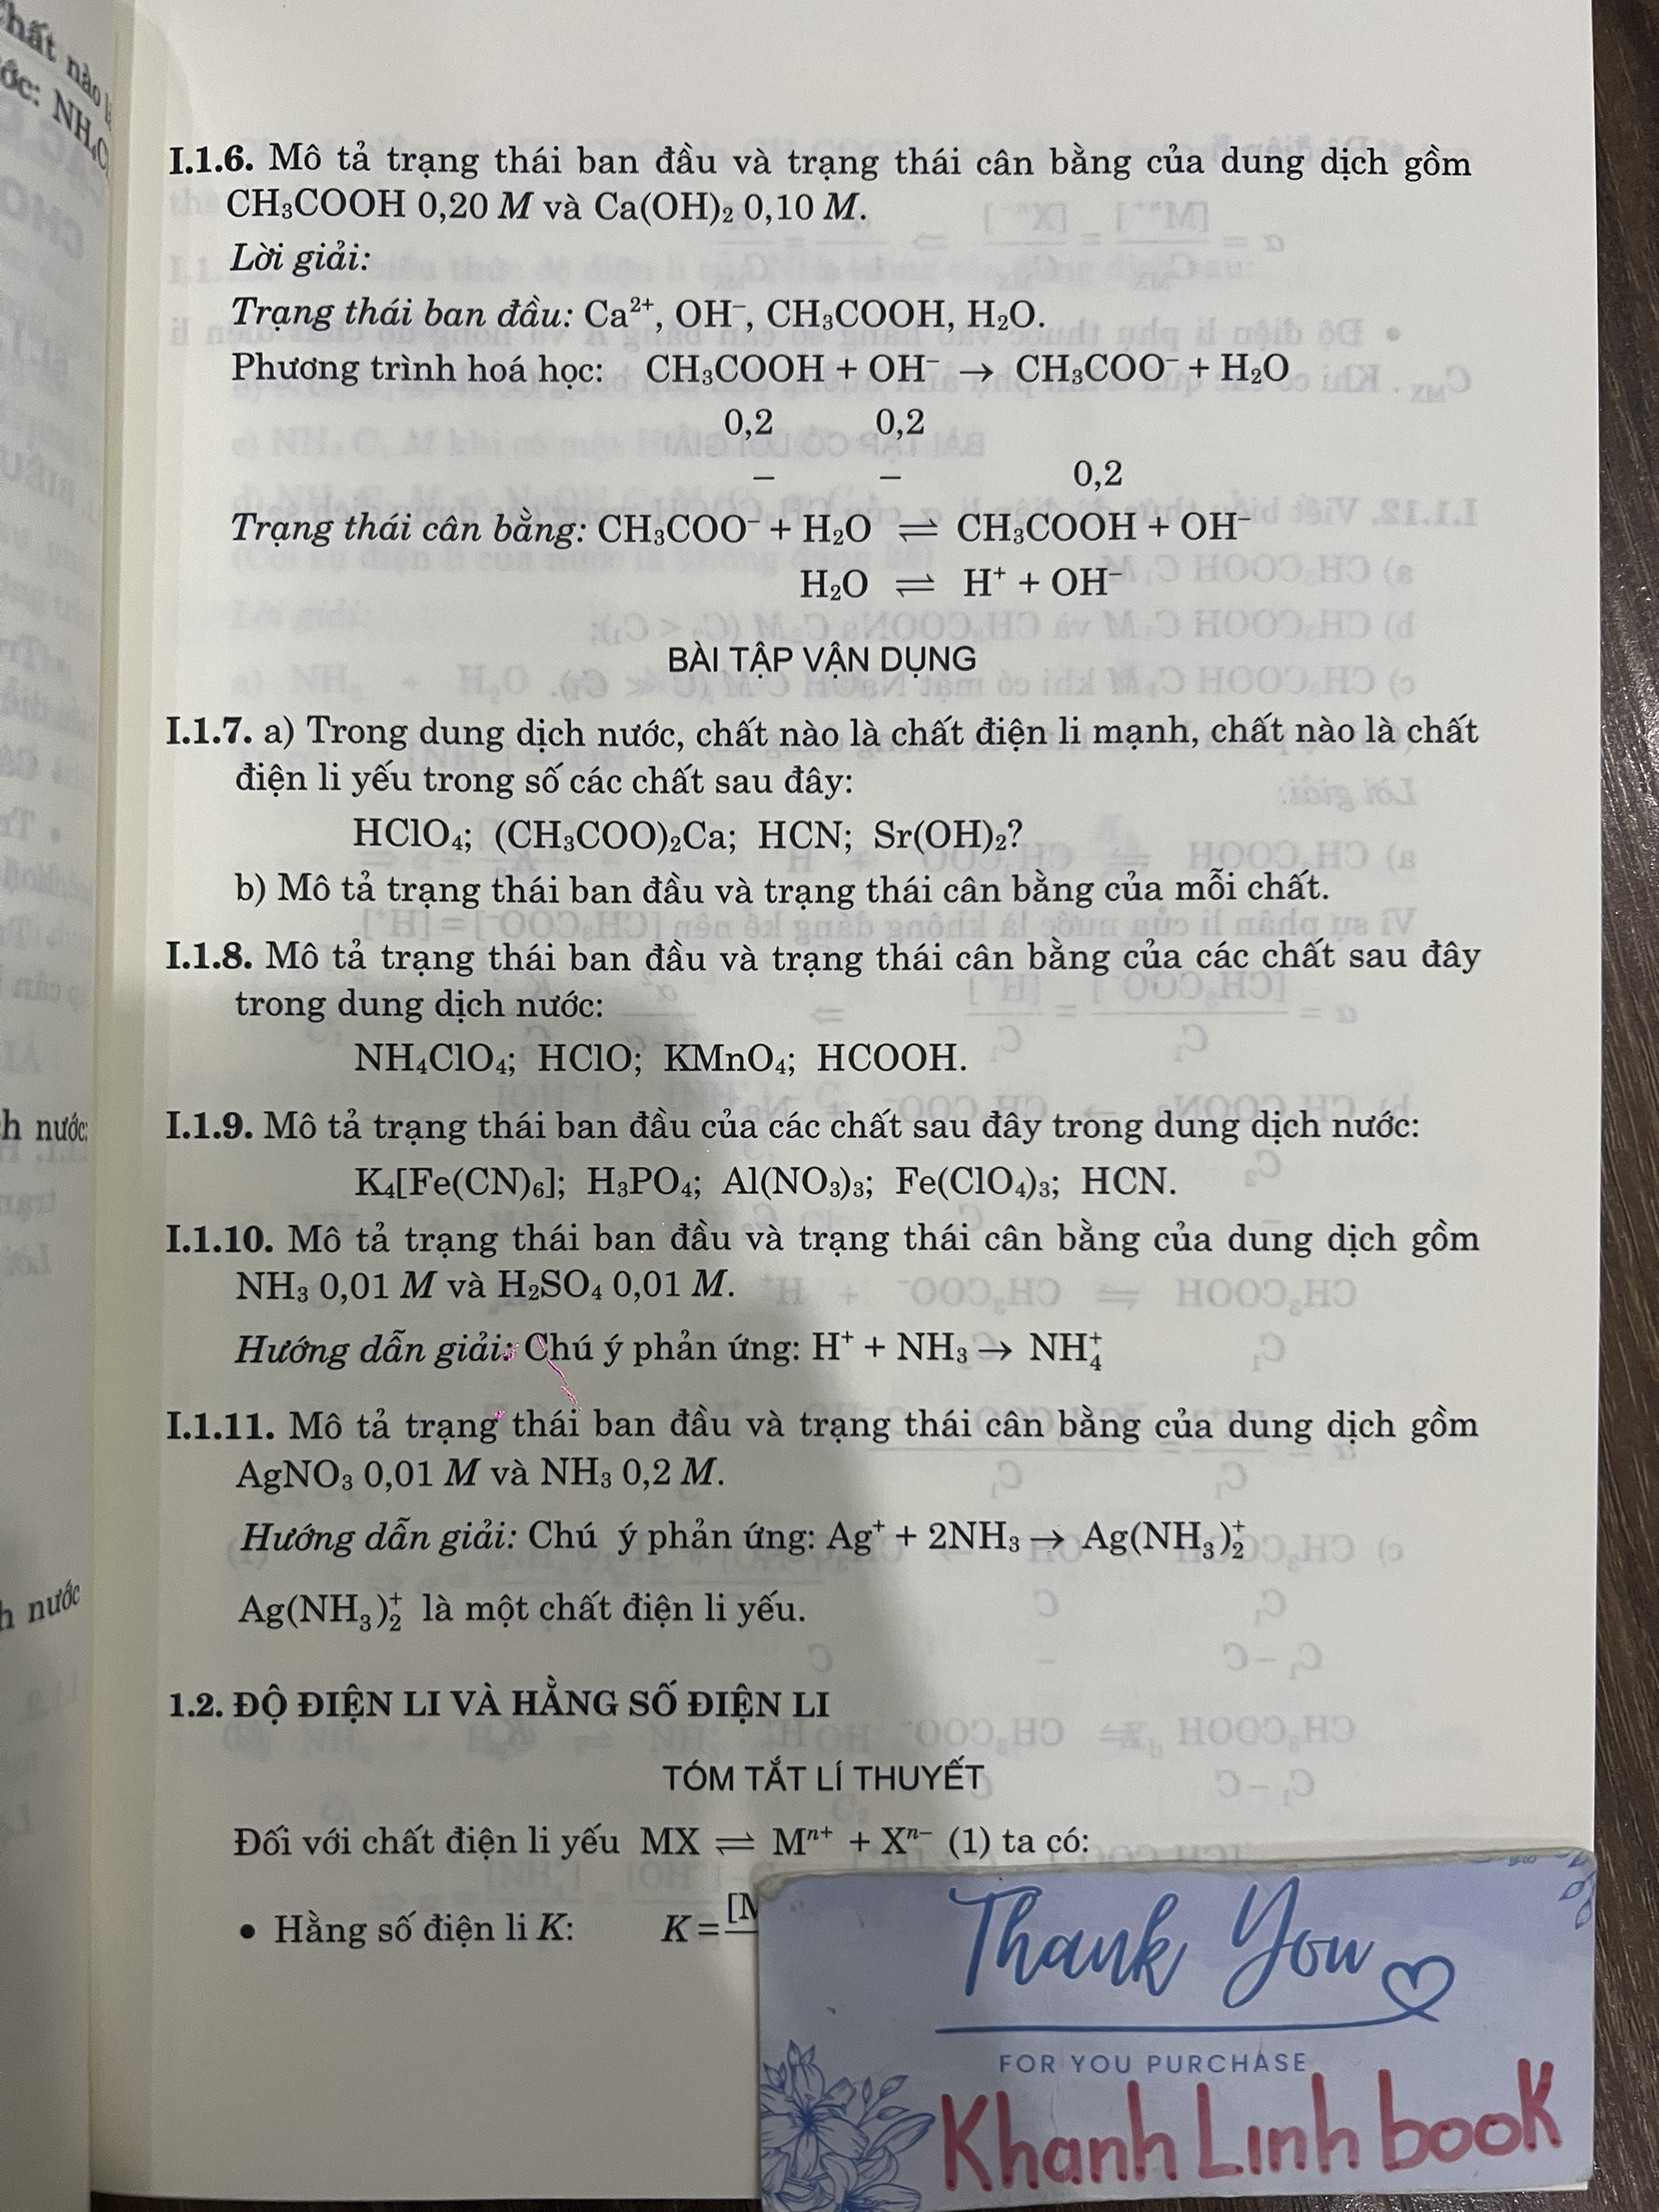 hất nào l
ớc: NH₄C
I.1.6. Mô tả trạng thái ban đầu và trạng thái cân bằng của dung dịch gồm
CH₃COOH 0,20 M và Ca(OH)₂ 0,10 M.
Lời giải:
Trạng thái ban đầu: Ca²⁺, OH⁻, CH₃COOH, H₂O.
Phương trình hoá học: CH₃COOH + OH⁻ → CH₃COO⁻ + H₂O
0,2 0,2
– – 0,2
Trạng thái cân bằng: CH₃COO⁻ + H₂O ⇌ CH₃COOH + OH⁻
H₂O ⇌ H⁺ + OH⁻
BÀI TẬP VẬN DỤNG
I.1.7. a) Trong dung dịch nước, chất nào là chất điện li mạnh, chất nào là chất
điện li yếu trong số các chất sau đây:
HClO₄; (CH₃COO)₂Ca; HCN; Sr(OH)₂?
b) Mô tả trạng thái ban đầu và trạng thái cân bằng của mỗi chất.
I.1.8. Mô tả trạng thái ban đầu và trạng thái cân bằng của các chất sau đây
trong dung dịch nước:
NH₄ClO₄; HClO; KMnO₄; HCOOH.
h nước:
I.1.9. Mô tả trạng thái ban đầu của các chất sau đây trong dung dịch nước:
K₄[Fe(CN)₆]; H₃PO₄; Al(NO₃)₃; Fe(ClO₄)₃; HCN.
I.1.10. Mô tả trạng thái ban đầu và trạng thái cân bằng của dung dịch gồm
NH₃ 0,01 M và H₂SO₄ 0,01 M.
Hướng dẫn giải: Chú ý phản ứng: H⁺ + NH₃ → NH₄⁺
I.1.11. Mô tả trạng thái ban đầu và trạng thái cân bằng của dung dịch gồm
AgNO₃ 0,01 M và NH₃ 0,2 M.
Hướng dẫn giải: Chú ý phản ứng: Ag⁺ + 2NH₃ → Ag(NH₃)₂⁺
h nước
Ag(NH₃)₂⁺ là một chất điện li yếu.
1.2. ĐỘ ĐIỆN LI VÀ HẰNG SỐ ĐIỆN LI
TÓM TẮT LÍ THUYẾT
Đối với chất điện li yếu MX ⇌ Mⁿ⁺ + Xⁿ⁻ (1) ta có:
• Hằng số điện li K: K = [M
Thank You
FOR YOU PURCHASE
Khanh Linh book